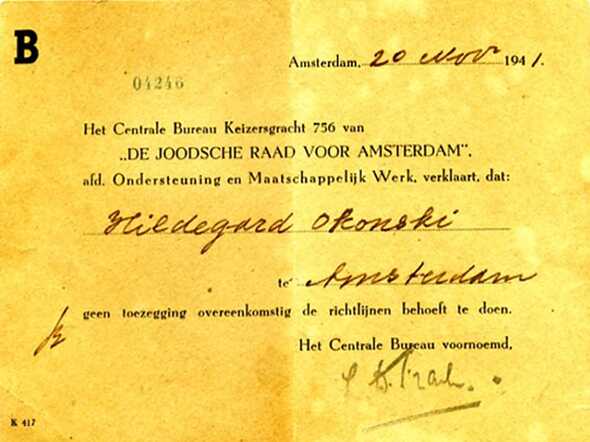 B
Amsterdam, 20 Nov 1941.
04246
Het Centrale Bureau Keizersgracht 756 van
„DE JOODSCHE RAAD VOOR AMSTERDAM",
afd. Ondersteuning en Maatschappelijk Werk, verklaart, dat:
Hildegard Okonski
te Amsterdam
geen toezegging overeenkomstig de richtlijnen behoeft te doen.
Het Centrale Bureau voornoemd,
K 417